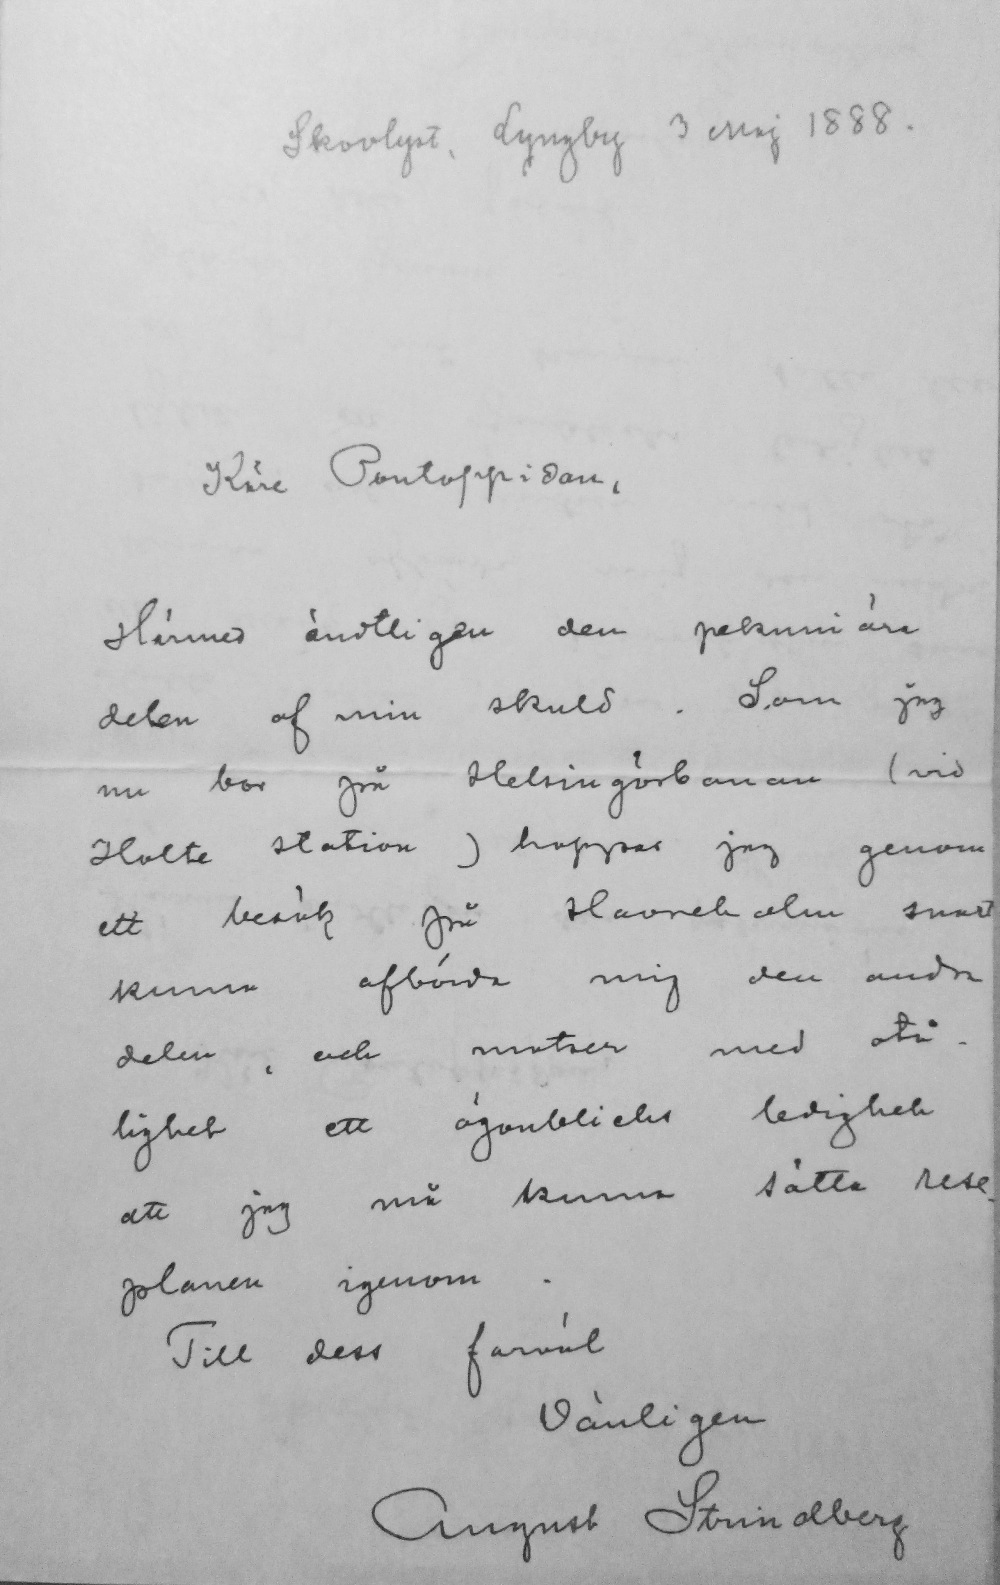 Skovlyst, Lyngby 3 Maj 1888.
Käre Pontoppidan,
Härmed ändtligen den pekuniära
delen af min skuld. Som jag
nu bor på Helsingörbanan (vid
Holte station) hoppas jag genom
ett besök på Havreholm snart
kunna afbörda mig den andra
delen, och motser med otå-
lighet ett ögonblicks ledighet
att jag må kunna sätta rese-
planen igenom.
Till dess farväl
Vänligen
August Strindberg